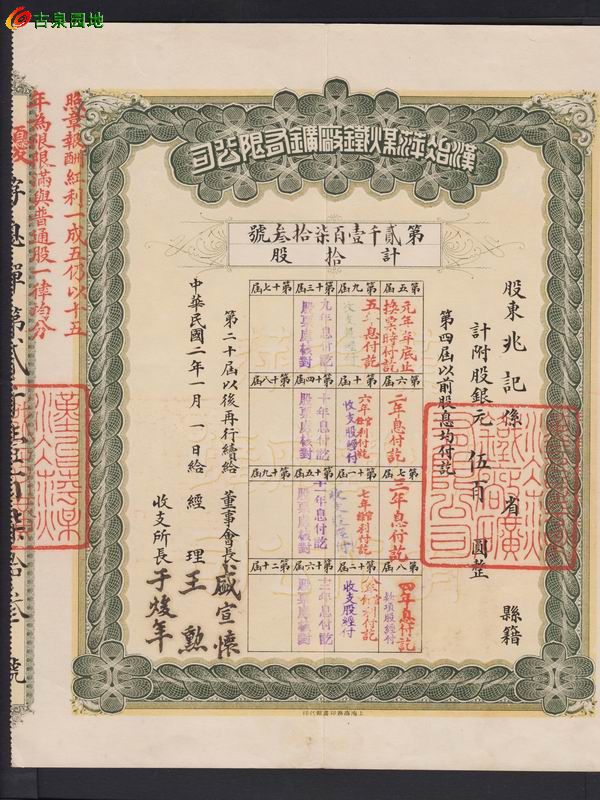 古泉园地
漢冶萍煤鐵廠礦有限公司
第貳千壹百柒拾叁號
計拾股
股東兆記係 省 縣籍
計附股銀元伍百圓整
第四屆以前股息均付訖
第五屆
元年年底止
換票時付訖
第六屆
二年息付訖
第七屆
三年息付訖
第八屆
四年息付訖
第九屆
五年息付訖
第十屆
六年
收支股經付
第十一屆
七年
第十二屆
收支股經付
第十三屆
九年息付訖
股票庫核對
第十四屆
十年息付訖
股票庫核對
第十五屆
十一年息付訖
股票庫核對
第十六屆
十二年息付訖
股票庫核對
第十七屆
第十八屆
第十九屆
第二十屆
第二十屆以後再行續給
中華民國二年一月一日給
董事會長盛宣懷
經理王勳
收支所長于焌年
照章報酬紅利一成五仍以十五
年為限限滿與普通股一律均分
優
字息單第貳千壹百柒拾叁號
上海商務印書館代印